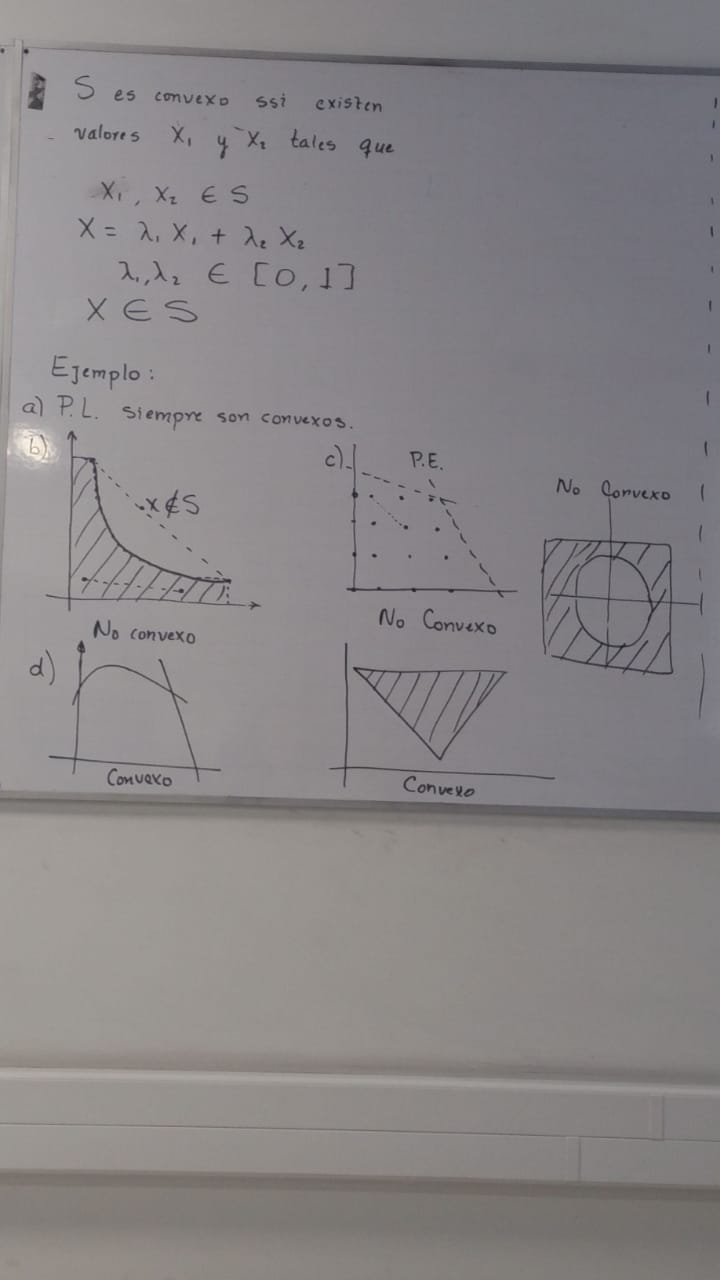 S es convexo ssi existen
valores X₁ y X₂ tales que
X₁, X₂ ∈ S
X = λ₁ X₁ + λ₂ X₂
λ₁, λ₂ ∈ [0, 1]
X ∈ S
Ejemplo:
a) P.L. siempre son convexos.
b)
x ∉ S
No convexo
c)
P.E.
No Convexo
No Convexo
d)
Convexo
Convexo